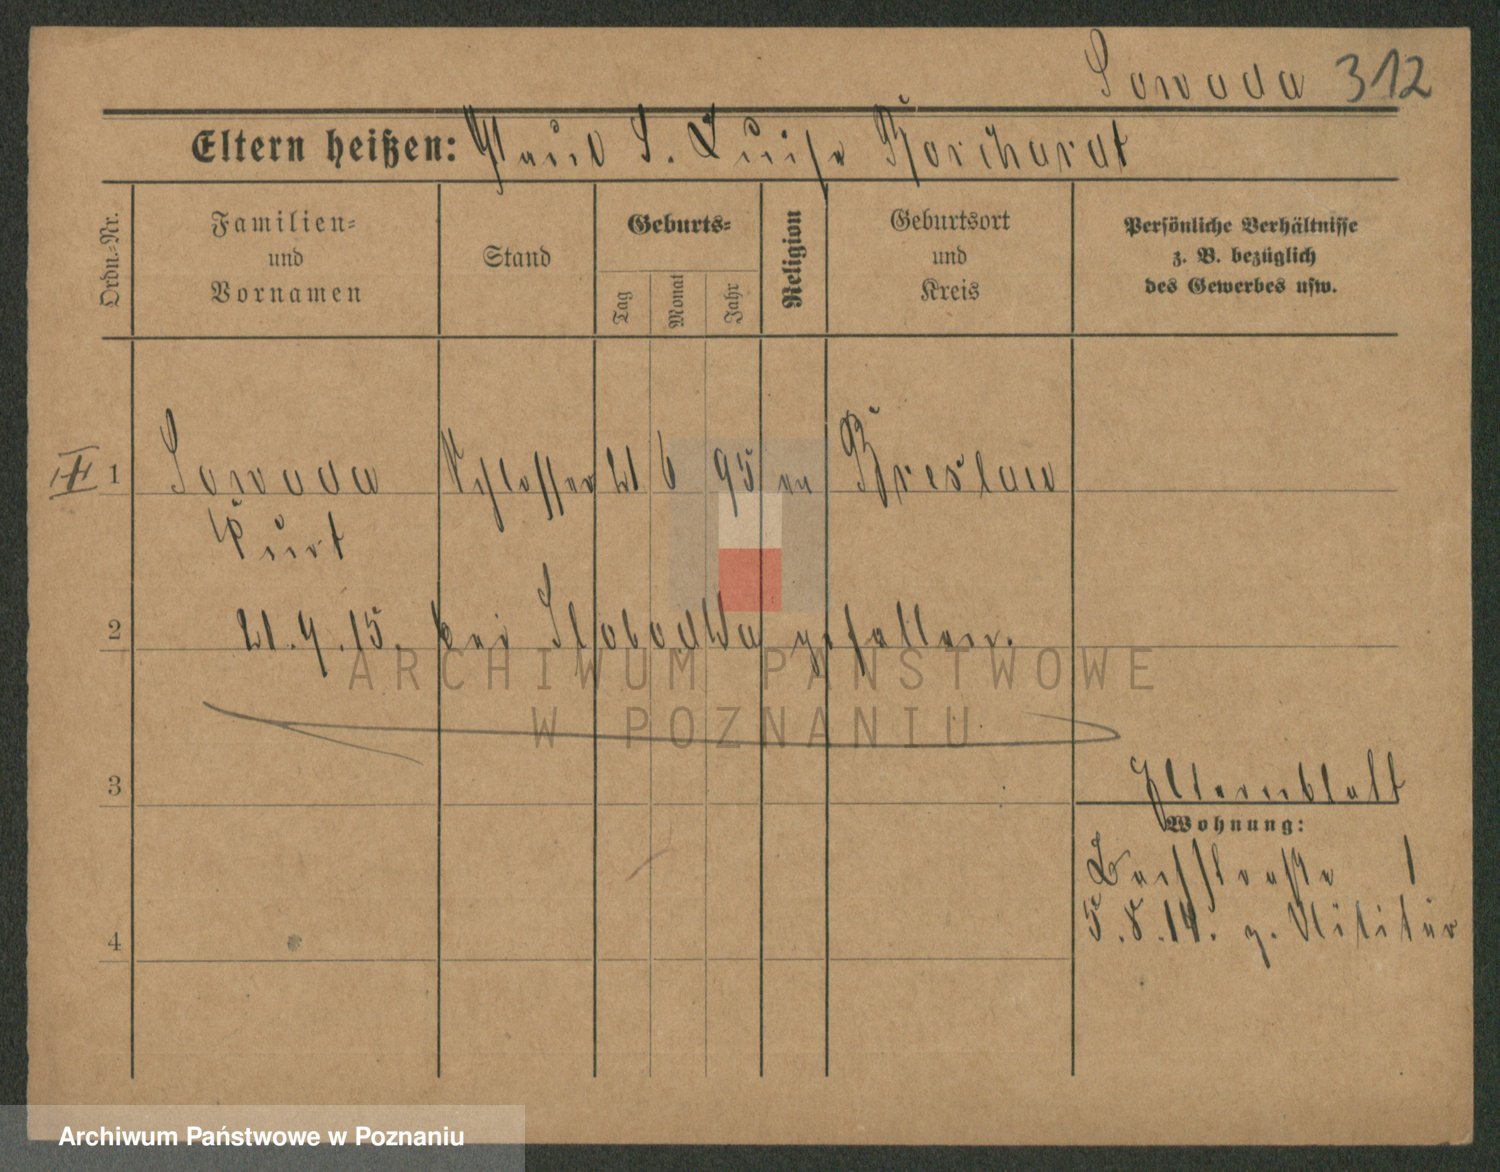 Sowada 312
Eltern heißen: Paul S. Luise Borchardt
Ordn.-Nr.
Familien-
und
Vornamen
Stand
Geburts-
Tag
Monat
Jahr
Religion
Geburtsort
und
Kreis
Persönliche Verhältnisse
z. B. bezüglich
des Gewerbes usw.
III 1 Sowada Schlosser 21 6 95 ev Breslau
Kurt
2 21.9.15. bei Slobodka gefallen.
ARCHIWUM PAŃSTWOWE
W POZNANIU
3
Elternblatt
Wohnung:
Bachstraße 1
5.8.14. z. Militär
4
Archiwum Państwowe w Poznaniu